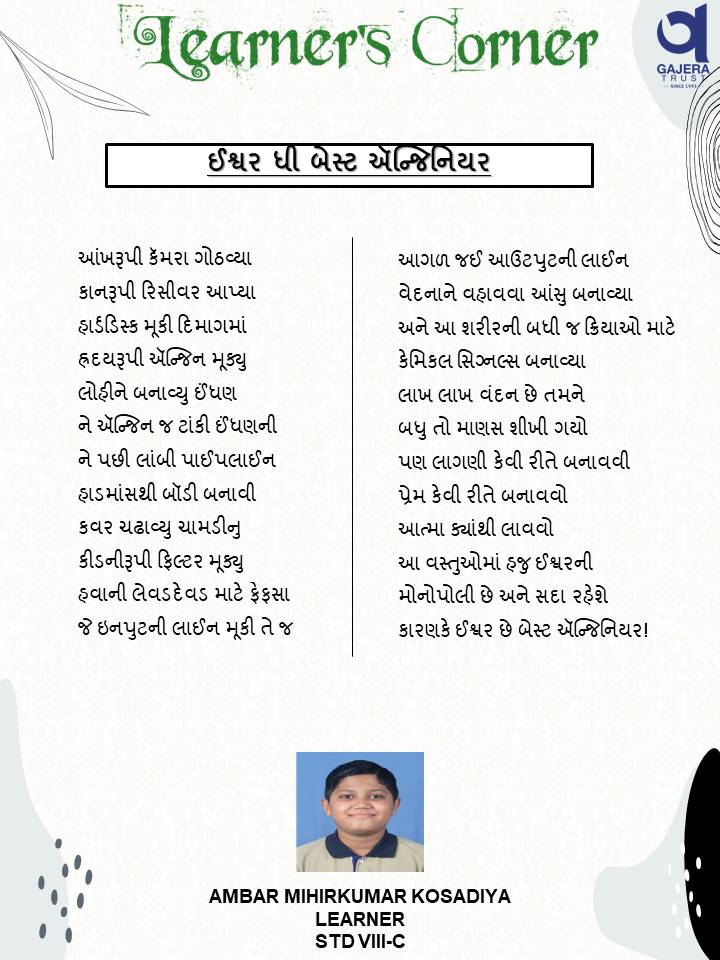 Learner's Corner
GAJERA
TRUST
SINCE 1993
ઈશ્વર ધી બેસ્ટ ઍન્જિનિયર
આંખરૂપી કૅમરા ગોઠવ્યા
કાનરૂપી રિસીવર આપ્યા
હાર્ડડિસ્ક મૂકી દિમાગમાં
હ્રદયરૂપી ઍન્જિન મૂક્યુ
લોહીને બનાવ્યુ ઈંધણ
ને ઍન્જિન જ ટાંકી ઈંધણની
ને પછી લાંબી પાઈપલાઈન
હાડમાંસથી બૉડી બનાવી
કવર ચઢાવ્યુ ચામડીનુ
કીડનીરૂપી ફિલ્ટર મૂક્યુ
હવાની લેવડદેવડ માટે ફેફસા
જે ઇનપુટની લાઈન મૂકી તે જ
આગળ જઈ આઉટપુટની લાઈન
વેદનાને વહાવવા આંસુ બનાવ્યા
અને આ શરીરની બધી જ ક્રિયાઓ માટે
કેમિકલ સિગ્નલ્સ બનાવ્યા
લાખ લાખ વંદન છે તમને
બધુ તો માણસ શીખી ગયો
પણ લાગણી કેવી રીતે બનાવવી
પ્રેમ કેવી રીતે બનાવવો
આત્મા ક્યાંથી લાવવો
આ વસ્તુઓમાં હજુ ઈશ્વરની
મોનોપોલી છે અને સદા રહેશે
કારણકે ઈશ્વર છે બેસ્ટ ઍન્જિનિયર!
AMBAR MIHIRKUMAR KOSADIYA
LEARNER
STD VIII-C